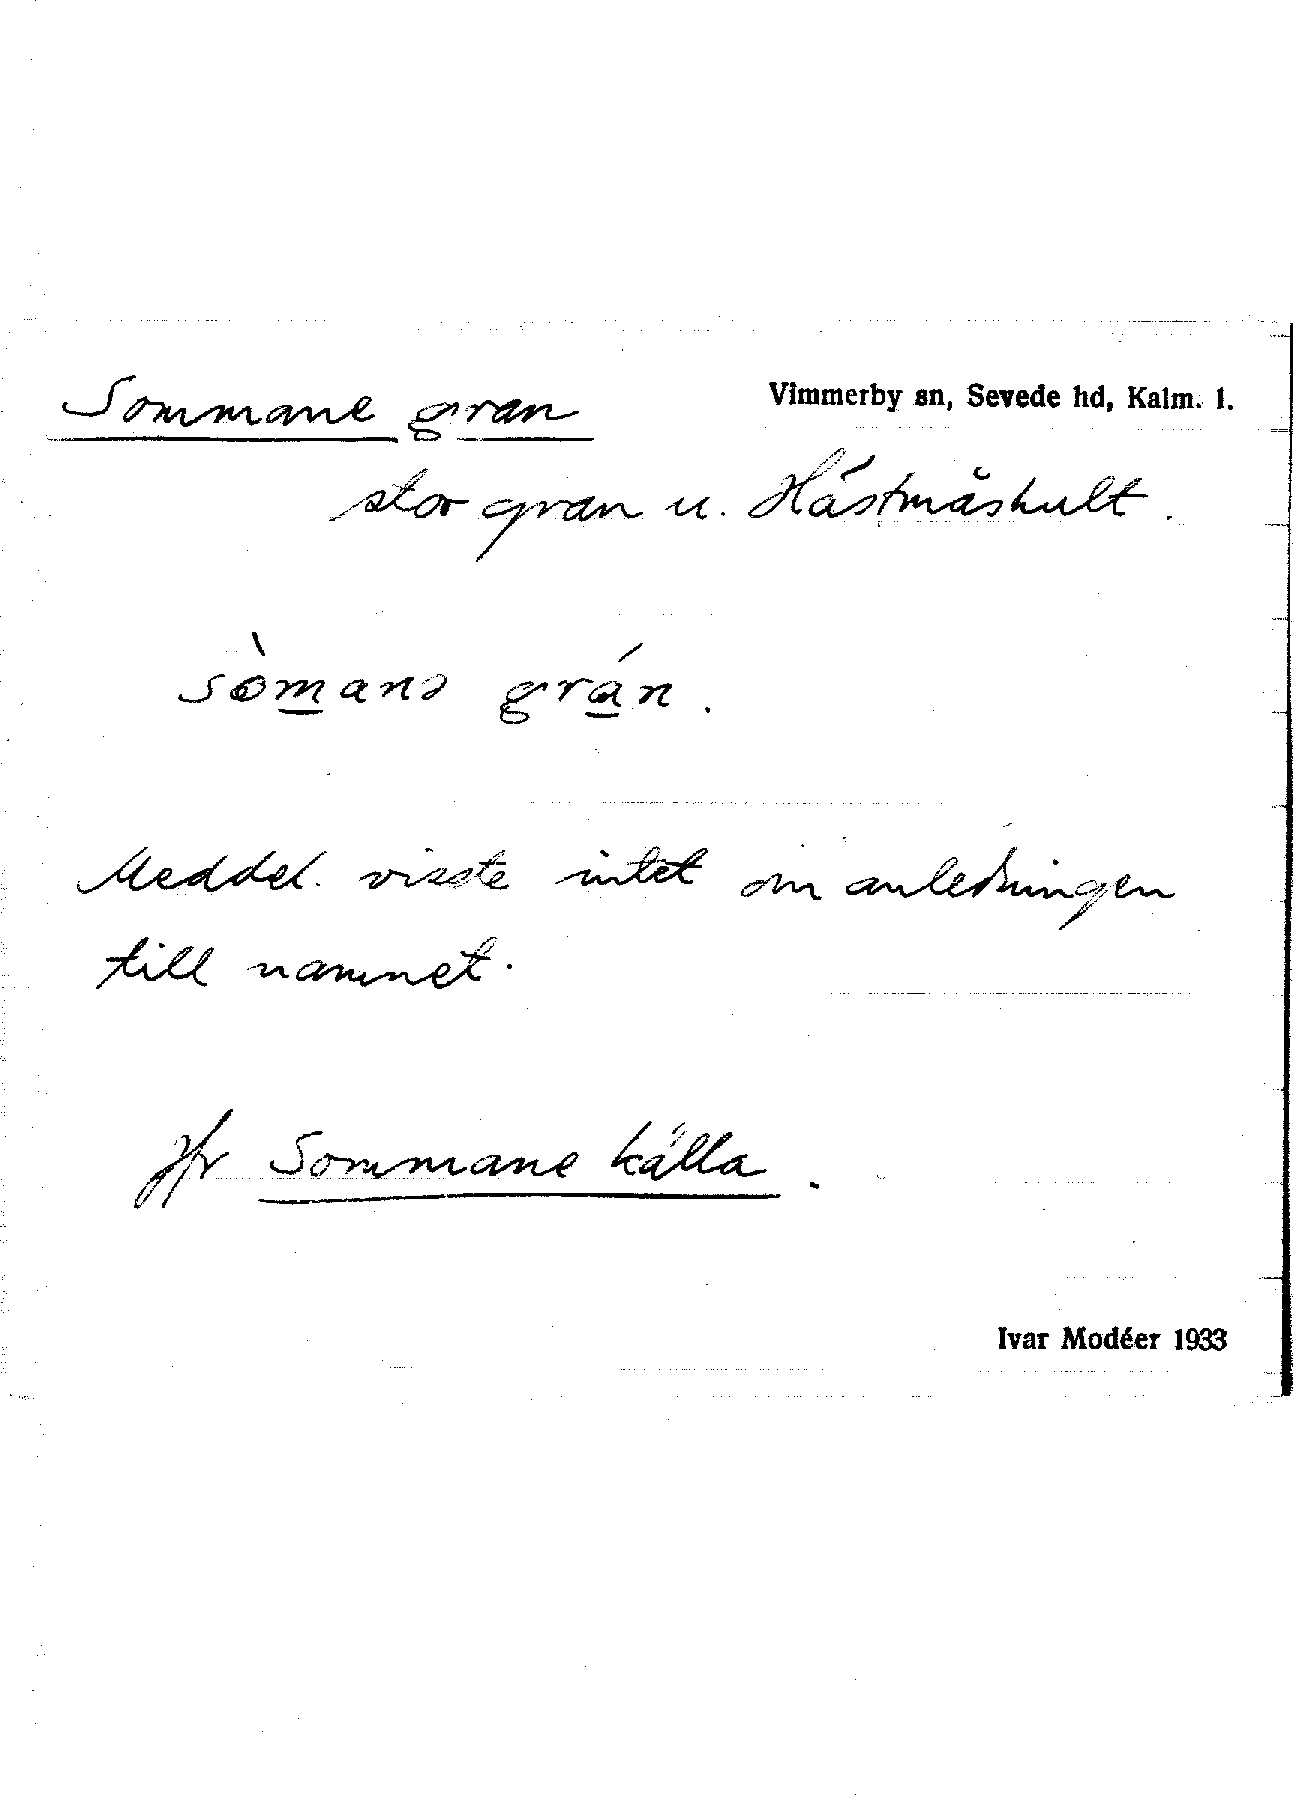 Sommane gran
Vimmerby sn, Sevede hd, Kalm. l.
stor gran u. Hästmåshult.
sòmanə grán.
Meddel. visste intet om anledningen
till namnet.
Jfr Sommane källa.
Ivar Modéer 1933